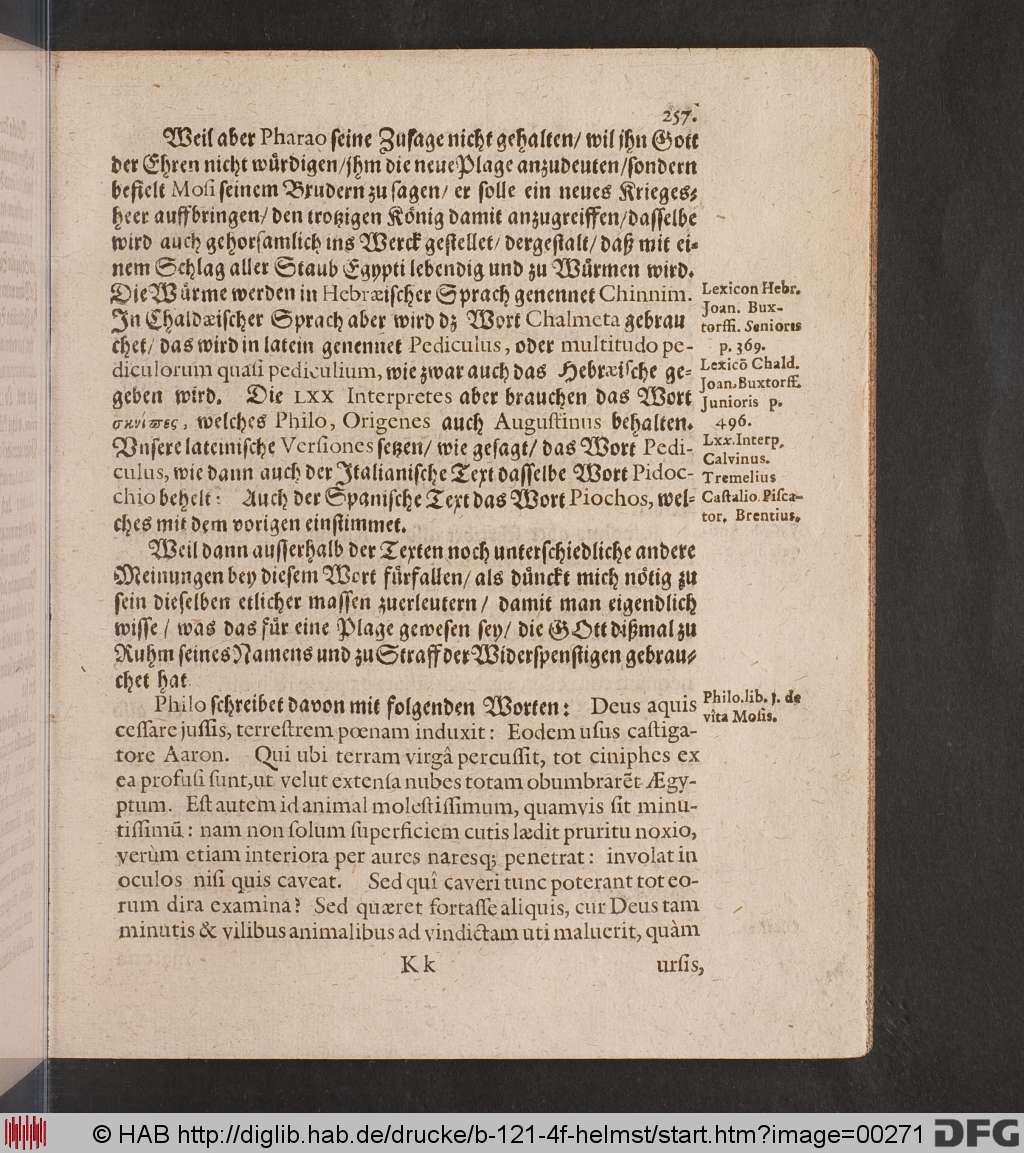 257.
Weil aber Pharao seine Zusage nicht gehalten/ wil jhn Gott
der Ehren nicht würdigen/jhm die neue Plage anzudeuten/sondern
befielt Mosi seinem Brudern zu sagen/ er solle ein neues Krieges-
heer auffbringen/ den trotzigen König damit anzugreiffen/dasselbe
wird auch gehorsamlich ins Werck gestellet/ dergestalt/ daß mit ei-
nem Schlag aller Staub Egypti lebendig und zu Würmen wird.
Die Würme werden in Hebræischer Sprach genennet Chinnim.
In Chaldæischer Sprach aber wird dz Wort Chalmeta gebrau
chet/ das wird in latein genennet Pediculus, oder multitudo pe-
diculorum quasi pediculium, wie zwar auch das Hebræische ge-
geben wird. Die LXX Interpretes aber brauchen das Wort
σκνίπες, welches Philo, Origenes auch Augustinus behalten.
Vnsere lateinische Versiones setzen/ wie gesagt/ das Wort Pedi-
culus, wie dann auch der Italianische Text dasselbe Wort Pidoc-
chio behelt: Auch der Spanische Text das Wort Piochos, wel-
ches mit dem vorigen einstimmet.
Lexicon Hebr.
Joan. Bux-
torffi. Senioris
p. 369.
Lexicō Chald.
Joan. Buxtorff.
Junioris p.
496.
Lxx. Interp.
Calvinus.
Tremelius
Castalio. Pisca-
tor. Brentius.
Weil dann ausserhalb der Texten noch unterschiedliche andere
Meinungen bey diesem Wort fürfallen/ als dünckt mich nötig zu
sein dieselben etlicher massen zuerleutern/ damit man eigendlich
wisse/ was das für eine Plage gewesen sey/ die GOtt dißmal zu
Ruhm seines Namens und zu Straff der Widerspenstigen gebrau-
chet hat.
Philo schreibet davon mit folgenden Worten: Deus aquis
cessare jussis, terrestrem pœnam induxit: Eodem usus castiga-
tore Aaron. Qui ubi terram virgâ percussit, tot ciniphes ex
ea profusi sunt, ut velut extensa nubes totam obumbrarēt Ægy-
ptum. Est autem id animal molestissimum, quamvis sit minu-
tissimū: nam non solum superficiem cutis lædit pruritu noxio,
verùm etiam interiora per aures naresq; penetrat: involat in
oculos nisi quis caveat. Sed quî caveri tunc poterant tot eo-
rum dira examina? Sed quæret fortasse aliquis, cur Deus tam
minutis & vilibus animalibus ad vindictam uti maluerit, quàm
Philo. lib. 1. de
vita Mosis.
K k
ursis,
© HAB http://diglib.hab.de/drucke/b-121-4f-helmst/start.htm?image=00271
DFG